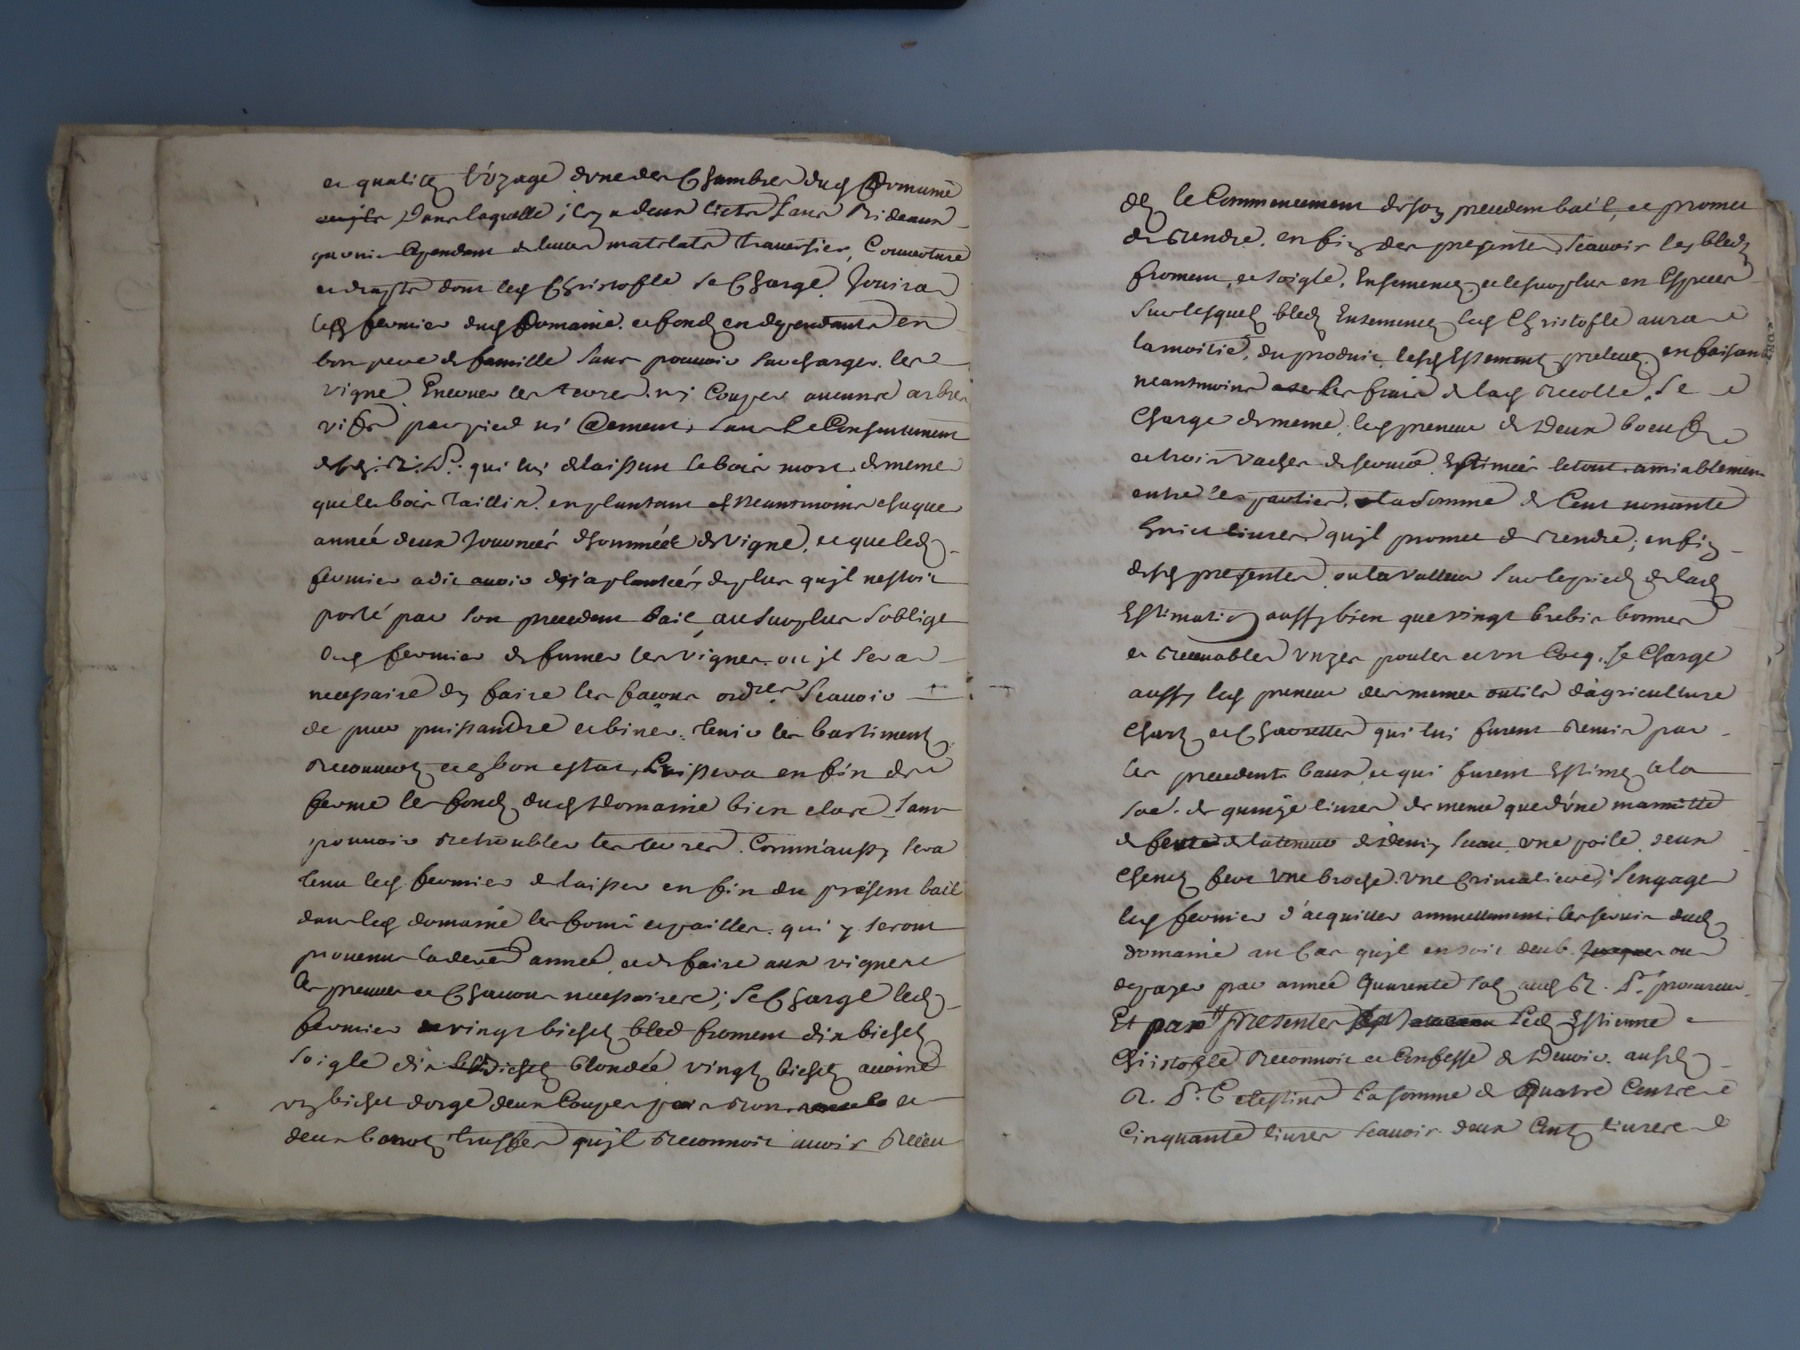 et qualité l'uzage d'une des Chambres dud Domaine
dans laquelle il y a deux licts sans Rideaux
garnis cependant de leurs matelats traversier, Couverture
et draps dont led Christofle se Charge. Jouira
led fermier dud Domaine et fondz en dependants en
bon pere de famille sans pouvoir surcharger les
vigne. Enerver les terres. ni Couper aucuns arbres
vifs par pied ni autrement, sans Le Consentement
desd. R. P. qui lui delaissent le bois mort de meme
que les bois Taillis. en plantant Neantmoins chaque
année deux Journées d'hommée de vigne, et que led
fermier a dit avoir deja plantées de plus qu'jl n'estoit
porté par son precedent bail, au surplus s'oblige
led fermier de fumer les vignes ou jl sera
necessaire dy faire les façons ordres Scavoir
de puer puissandre et biner. tenir les bastiments
Recouverts et en bon estat, Laissera en fin de
ferme les fondz dud Domaine bien clos. sans
pouvoir retroubler les terres. Comm'aussy sera
tenu led. fermier de laisser en fin du présent bail
dans led domaine les foins et pailles. qui y seront
provenus la derre année et de faire aux vignes
les preuves et Chavons necessaires; Se Charge led
fermier de vingt bichets bled froment dix bichets
soigle dix bichets blondée vingt bichets avoine
un bichet d'orge deux Coupes et
deux truffes qu'jl Reconnoit avoir Receu
dez le Commencement de son precedent bail, et promet
de rendre. en fin des presentes, Scavoir les bledz
froment, et soigle, Ensemencez et le surplus en Espèces
Sur lesquels bledz Ensemencez led Christofle aura
la moitié, du produit, lesd Essements prelevez en faisant
neantmoins les frais de lad recolte. Se
Charge de meme, led preneur de Deux boeufs
et trois vaches de fermé, Estimées le tout amiablement
entre les parties, a la Somme de Cent nonante
huict livres qu'jl promet de rendre, en fin
desd presentes ou la valleur Sur le pied de lad
Estimation aussy bien que vingt brebis bonnes
et recevables unze poules et un Cocq. Se Charge
aussy led preneur des memes outils d'agriculture
Chars et Charrettes qui lui furent remis par
les precedents baux et qui furent Estimez a la
soe. de quinze livres de meme que d'une marmitte
de fonte de la tenue de demy seau, une poile, deux
Chenets fere une broche. une Crimaliere; S'engage
led fermier d'acquitter annuellement les servis dud
domaine au Cas qu'jl en soit deub ou
de payer par année Quarente Solz aud R. P. procureur
Et par presentes Led Estienne
Christofle Reconnoit et Confesse de Devoir. ausd
R. P. Celestins La somme de Quatre Centz
Cinquante livres Scavoir deux Centz livres